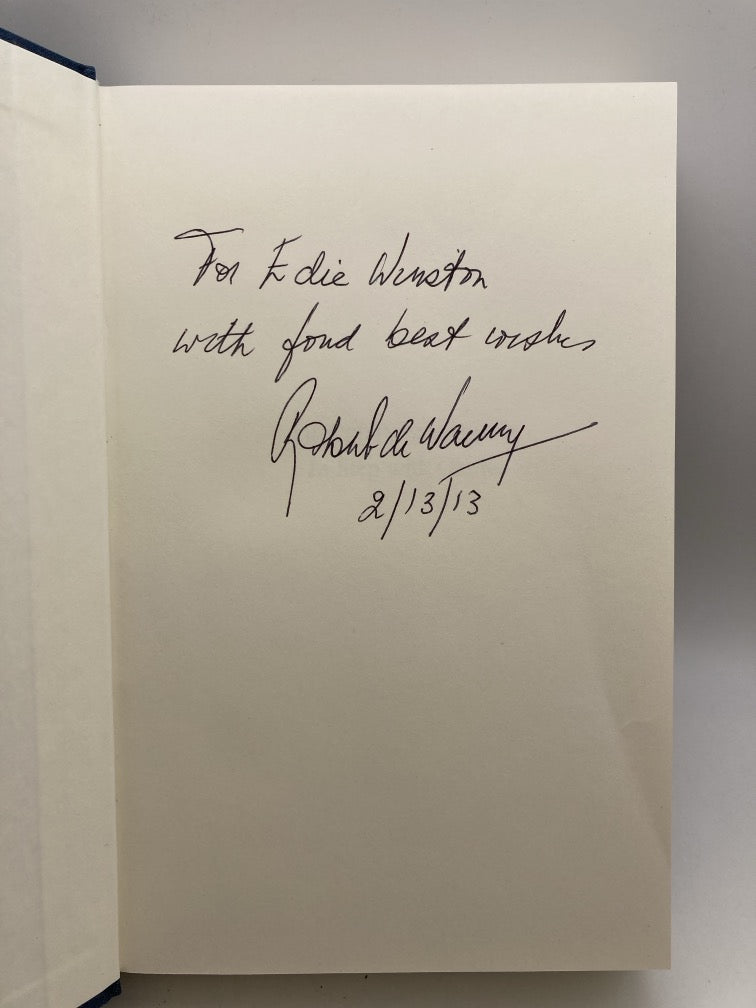 For Edie Winston
with fond best wishes
Robert de Warren
2/13/13